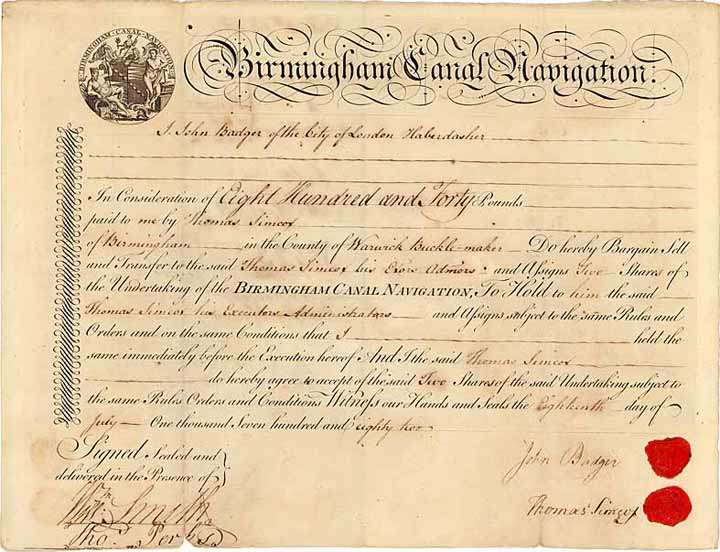 BIRMINGHAM · CANAL · NAVIGATION
Birmingham Canal Navigation.
I. John Badger of the City of London Haberdasher
In Consideration of Eight Hundred and Forty Pounds
paid to me by Thomas Simcox
of Birmingham in the County of Warwick Buckle-maker Do hereby Bargain Sell
and Transfer to the said Thomas Simcox his Exors Admors and Assigns Two Shares of
the Undertaking of the BIRMINGHAM CANAL NAVIGATION, To Hold to him the said
Thomas Simcox his Executors Administrators and Assigns subject to the same Rules and
Orders and on the same Conditions that I held the
same immediately before the Execution hereof And I the said Thomas Simcox
do hereby agree to accept of the said Two Shares of the said Undertaking subject to
the same Rules Orders and Conditions Witness our Hands and Seals the Eighteenth day of
July One thousand Seven hundred and eighty two
Signed Sealed and
delivered in the Presence of
John Badger
Thomas Simcox
Wm. Smith
Tho.